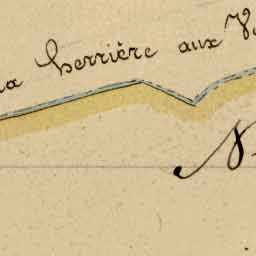 la Verrière aux V
N